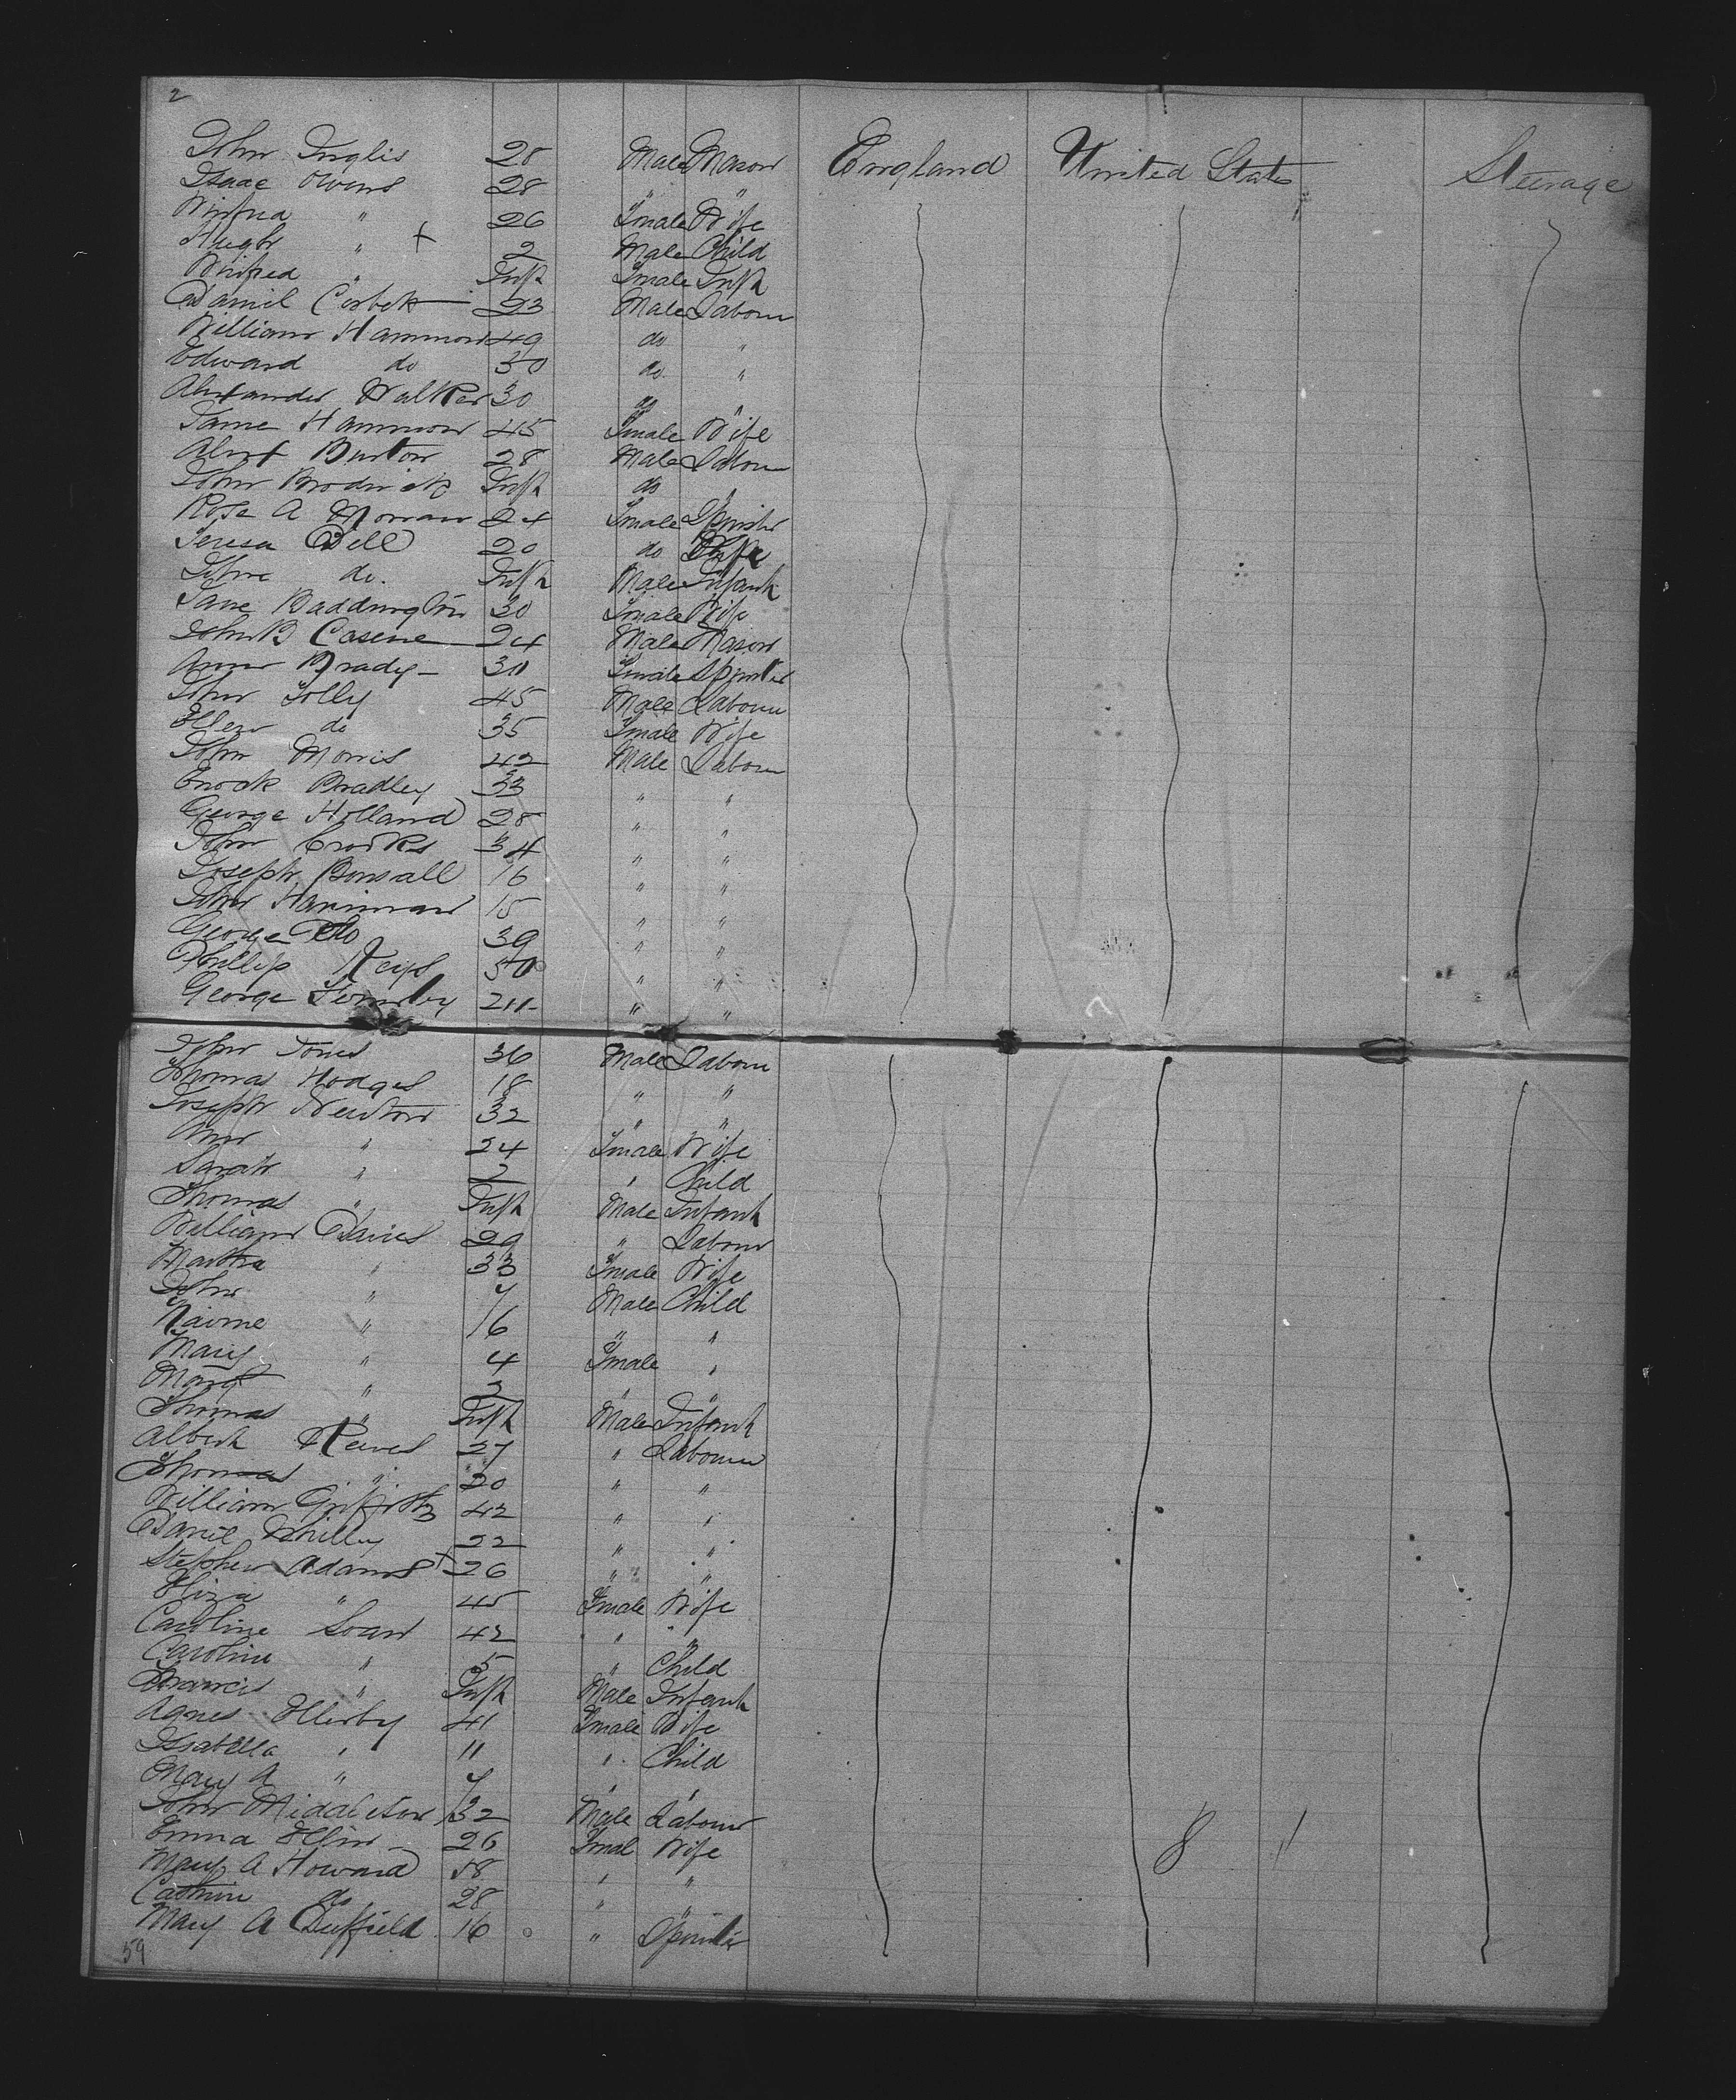 2
John Inglis 28 Male Mason England United States Steerage
Isaac Owens 28 " "
Winfred " 26 Fmale Wife
Hugh " + 2 Male Child
Winfred " Inft Fmale Inft
Daniel Corbett 23 Male Labour
William Hammon 49 do "
Edward do 30 do "
Alexander Walker 30 do "
Jame Hammon 45 Fmale Wife
Alext Burton 28 Male Labour
John Brodrick Inft do "
Rose A Morran 24 Fmale Spinster
Teresa Bell 20 do Wife
John do. Inft Male Infant
Jane Baddington 30 Fmale Wife
John B Casene 24 Male Mason
Anne Brady 30 Fmale Spinster
John Jolly 45 Male Labour
Ellen do 35 Fmale Wife
John Morris 42 Male Labour
Enock Bradley 33 " "
George Holland 28 " "
John Crooks 34 " "
Joseph Bonsall 16 " "
John Harriman 15 " "
George Do 39 " "
Phillip Keys 50 " "
George " "
John Jones 36 Male Labour
Thomas Hodges 18 " "
Joseph Newton 32 " "
Ann " 24 Fmale Wife
Sarah " 2 " Child
Thomas " Inft Male Infant
William Davies 29 " Labour
Martha " 33 Fmale Wife
John " 7 Male Child
" 6 " "
Mary " 4 Fmale "
Margt " 2 " "
Thomas " Inft Male Infant
Albert Reeves 27 " Labour
Thomas " 20 " "
William Griffiths 42 " "
David 22 " "
Stephen Adams + 26 " "
Eliza " 45 Fmale Wife
Caroline Soan 42 " "
Caroline " 5 " Child
Francis " Inft Male Infant
Agnes Ellerby 41 Fmale Wife
Isabella " 11 " Child
Mary A " 7 " "
John Middleton 32 Male Labour
Emma Ellin 26 Fmal Wife 8 1
Mary A Howard 58 " "
Cathrin do 28 " "
Mary A Duffield 16 " Spinster
59